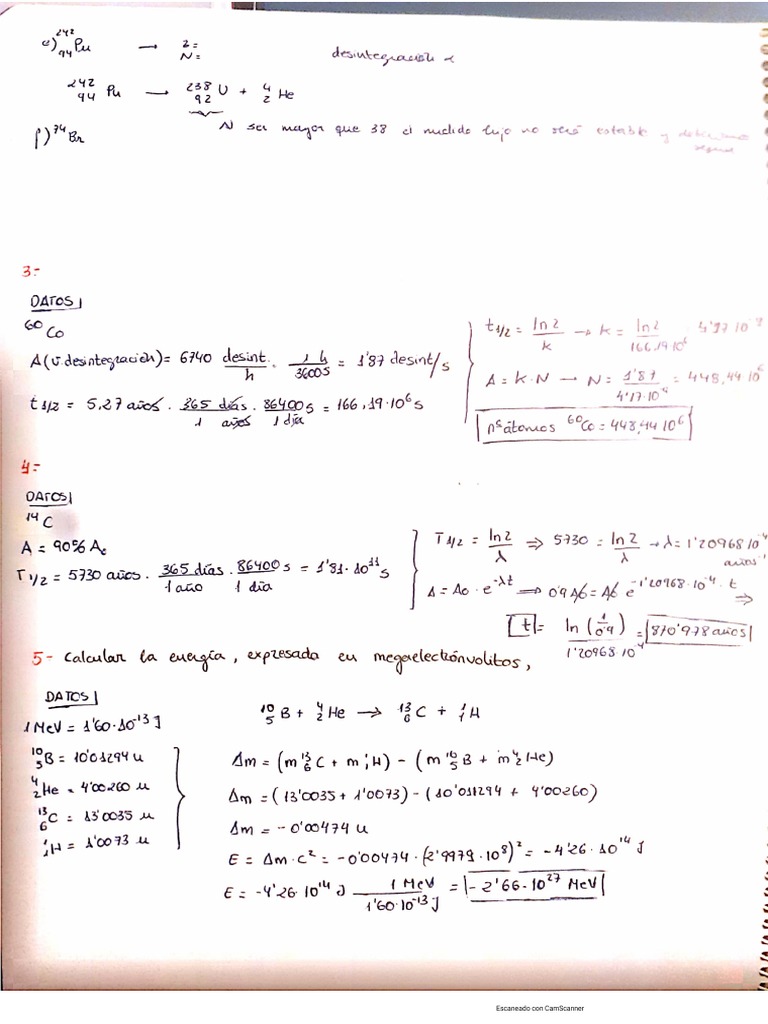 e) ²⁴²₉₄Pu → Z =
N =
desintegración α
²⁴²₉₄Pu → ²³⁸₉₂U + ⁴₂He
N ser mayor que 38 el nuclido hijo no será estable y
f) ⁷⁴Br
3:-
DATOS
⁶⁰Co
A (v. desintegración) = 6740 desint./h · 1 h/3600 s = 1'87 desint/s
t 1/2 = 5,27 años · 365 días/1 años · 86400 s/1 día = 166,19·10⁶ s
t 1/2 = ln 2/k → k = ln 2/166.19·10⁶ = 4'17·10⁻⁹
A = k·N → N = 1'87/4'17·10⁻⁹ = 448,44 10⁶
nº átomos ⁶⁰Co = 448,44 10⁶
4:-
DATOS
¹⁴C
A = 90% A₀
T 1/2 = 5730 años · 365 días/1 año · 86400 s/1 día = 1'81·10¹¹ s
T 1/2 = ln 2/λ ⇒ 5730 = ln 2/λ → λ = 1'20968 10⁻⁴ años⁻¹
A = A₀ · e^-λt ⇒ 0'9 A₀ = A₀ e^-1'20968·10⁻⁴·t ⇒
t = ln (1/0'9)/1'20968·10⁻⁴ = 870'978 años
5- Calcular la energía, expresada en megaelectrónvolitos,
DATOS
1 MeV = 1'60·10⁻¹³ J
¹⁰₅B = 10'01294 u
⁴₂He = 4'00260 u
¹³₆C = 13'0035 u
¹₁H = 1'0073 u
¹⁰₅B + ⁴₂He → ¹³₆C + ¹₁H
Δm = (m ¹³₆C + m ¹₁H) - (m ¹⁰₅B + m ⁴₂He)
Δm = (13'0035 + 1'0073) - (10'01294 + 4'00260)
Δm = - 0'00474 u
E = Δm·c² = -0'00474·(2'9979·10⁸)² = -4'26·10¹⁴ J
E = -4'26·10¹⁴ J 1 MeV/1'60·10⁻¹³ J = - 2'66·10²⁷ MeV
Escaneado con CamScanner